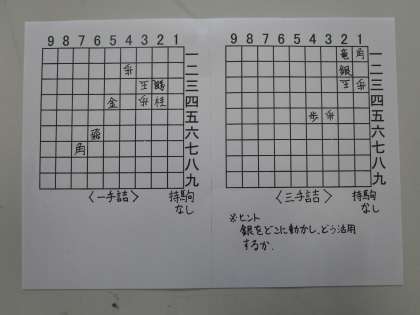 9 8 7 6 5 4 3 2 1
一
二
三
四
五
六
七
八
九
歩
王
金
歩 桂
飛
角
〈一手詰〉
持駒
なし
9 8 7 6 5 4 3 2 1
一
二
三
四
五
六
七
八
九
竜 角
銀
王 歩
歩 歩
〈三手詰〉
持駒
なし
※ヒント
銀をどこに動かし、どう活用
するか.